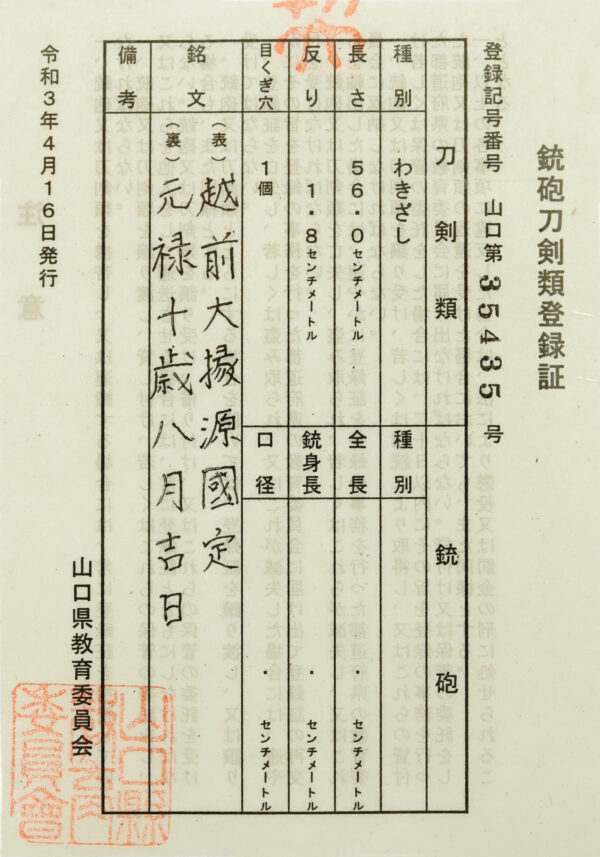 銃砲刀剣類登録証
登録記号番号 山口第 35435 号
刀剣類
種別 わきざし
長さ 56.0センチメートル
反り 1.8センチメートル
目くぎ穴 1個
銘文 (表) 越前大掾源國定
(裏) 元禄十歳八月吉日
備考
銃砲
種別
全長 ・ センチメートル
銃身長 ・ センチメートル
口径 ・ センチメートル
令和3年4月16日発行
山口県教育委員会
山口縣
委員會